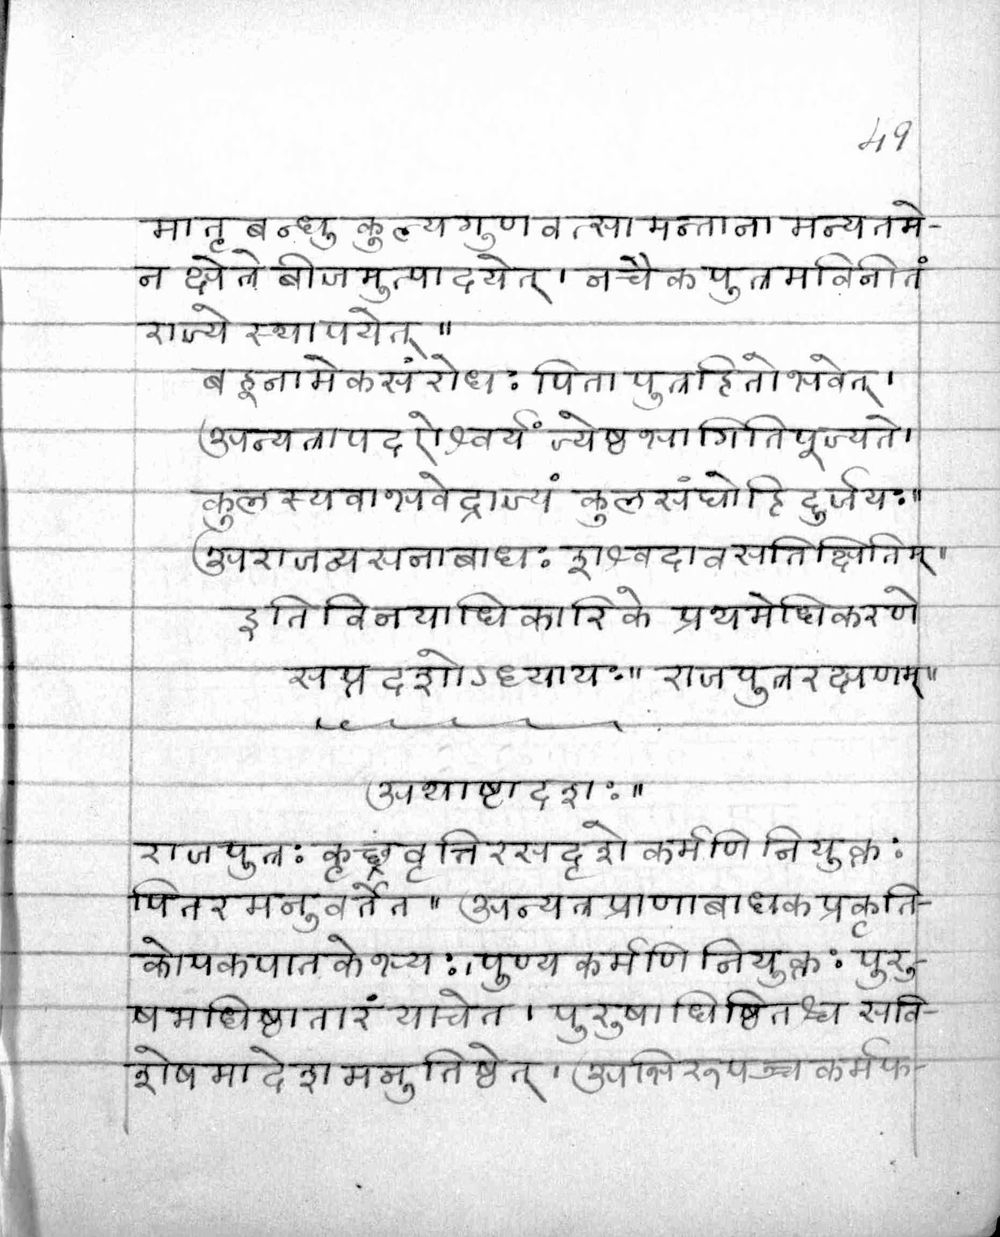 49
मातृबन्धुकुल्यगुणवत्सामन्तानामन्यतमे-
न क्षेत्रे बीजमुत्पादयेत्। नचैकपुत्रमविनीतं
राज्ये स्थापयेत्॥
बहूनामेकसंरोधः पिता पुत्रहितो भवेत्।
अन्यत्रापद ऐश्वर्यं ज्येष्ठभागितिपूज्यते।
कुलस्यवाभवेद्राज्यं कुलसंघोहि दुर्जयः॥
अराजव्यसनाबाधः शश्वदावसतिक्षितिम्॥
इति विनयाधिकारिके प्रथमेधिकरणे
सप्तदशोऽध्यायः॥ राजपुत्ररक्षणम्॥
अथाष्टादशः॥
राजपुत्रः कृच्छ्रवृत्तिरसदृशे कर्मणि नियुक्तः
पितरमनुवर्तेत॥ अन्यत्रप्राणाबाधकप्रकृति-
कोपकपातकेभ्यः। पुण्यकर्मणि नियुक्तः पुरु-
षमधिष्ठातारं याचेत। पुरुषाधिष्ठितश्च सवि-
शेषमादेशमनुतिष्ठेत्। अभिरूपञ्च कर्मफ-